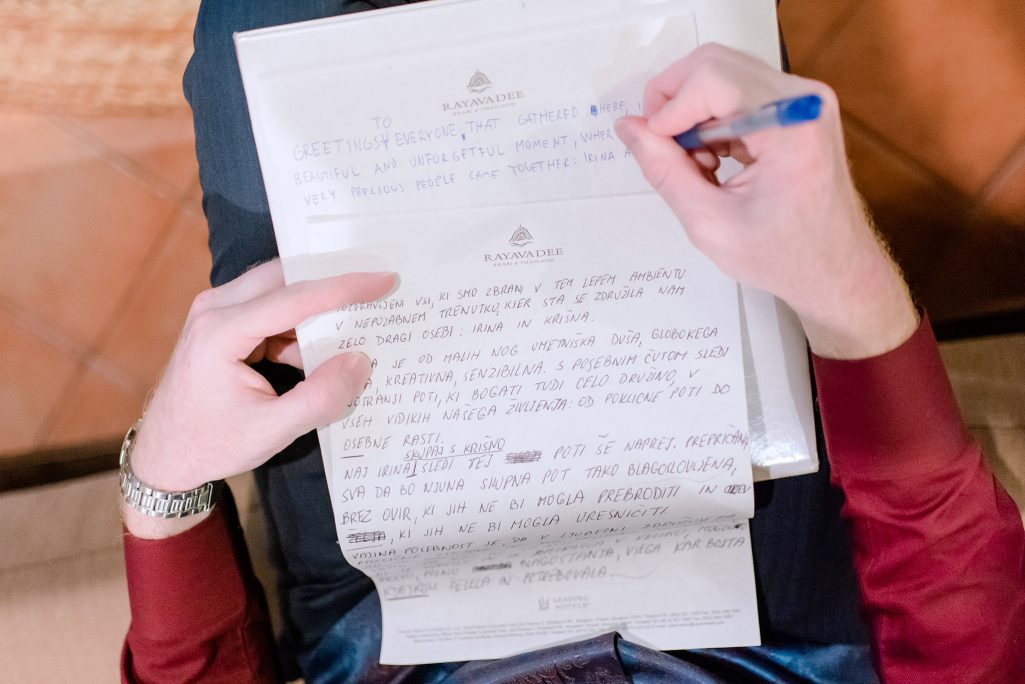 RAYAVADEE
KRABI THAILAND
TO
GREETINGS EVERYONE, THAT GATHERED HERE, I
BEAUTIFUL AND UNFORGETFUL MOMENT, WHER
VERY PRECIOUS PEOPLE CAME TOGETHER: IRINA A
RAYAVADEE
KRABI THAILAND
POZDRAVLJENI VSI, KI SMO ZBRANI V TEM LEPEM AMBIENTU
V NEPOZABNEM TRENUTKU, KJER STA SE ZDRUŽILA NAM
ZELO DRAGI OSEBI: IRINA IN KRIŠNA.
A JE OD MALIH NOG UMETNIŠKA DUŠA, GLOBOKEGA
A, KREATIVNA, SENZIBILNA. S POSEBNIM ČUTOM SLEDI
NOTRANJI POTI, KI BOGATI TUDI CELO DRUŽINO, V
VSEH VIDIKIH NAŠEGA ŽIVLJENJA: OD POKLICNE POTI DO
OSEBNE RASTI.
SKUPAJ S KRIŠNO
NAJ IRINA SLEDI TEJ POTI ŠE NAPREJ. PREPRIČANA
SVA DA BO NJUNA SKUPNA POT TAKO BLAGOSLOVLJENA,
BREZ OVIR, KI JIH NE BI MOGLA PREBRODITI IN
, KI JIH NE BI MOGLA URESNIČITI.
VAJINA POSEBNOST JE, DA V LJUBEZNI
POLNO BLAGOSTANJA, VSEGA KAR BOSTA
ŽELELA IN POTREBOVALA.
LEADING
HOTELS